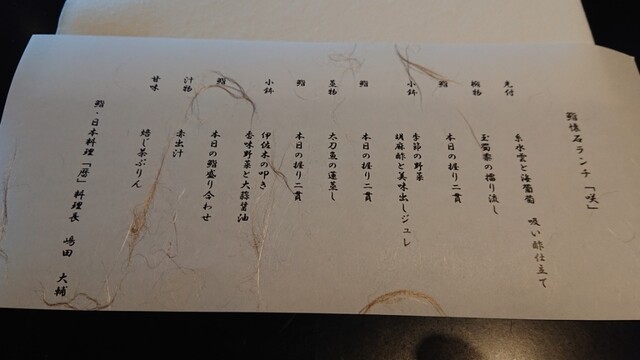 鮨懐石ランチ「咲」
先付
糸水雲と海葡萄 吸い酢仕立て
椀物
玉蜀黍の擂り流し
鮨
本日の握り二貫
小鉢
季節の野菜
胡麻酢と美味出しジュレ
鮨
本日の握り二貫
蒸物
太刀魚の蓮蒸し
鮨
本日の握り二貫
小鉢
伊佐木の叩き
香味野菜と大蒜醤油
鮨
本日の鮨盛り合わせ
汁物
赤出汁
甘味
焙じ茶ぷりん
鮨・日本料理「暦」料理長 嶋田 大輔